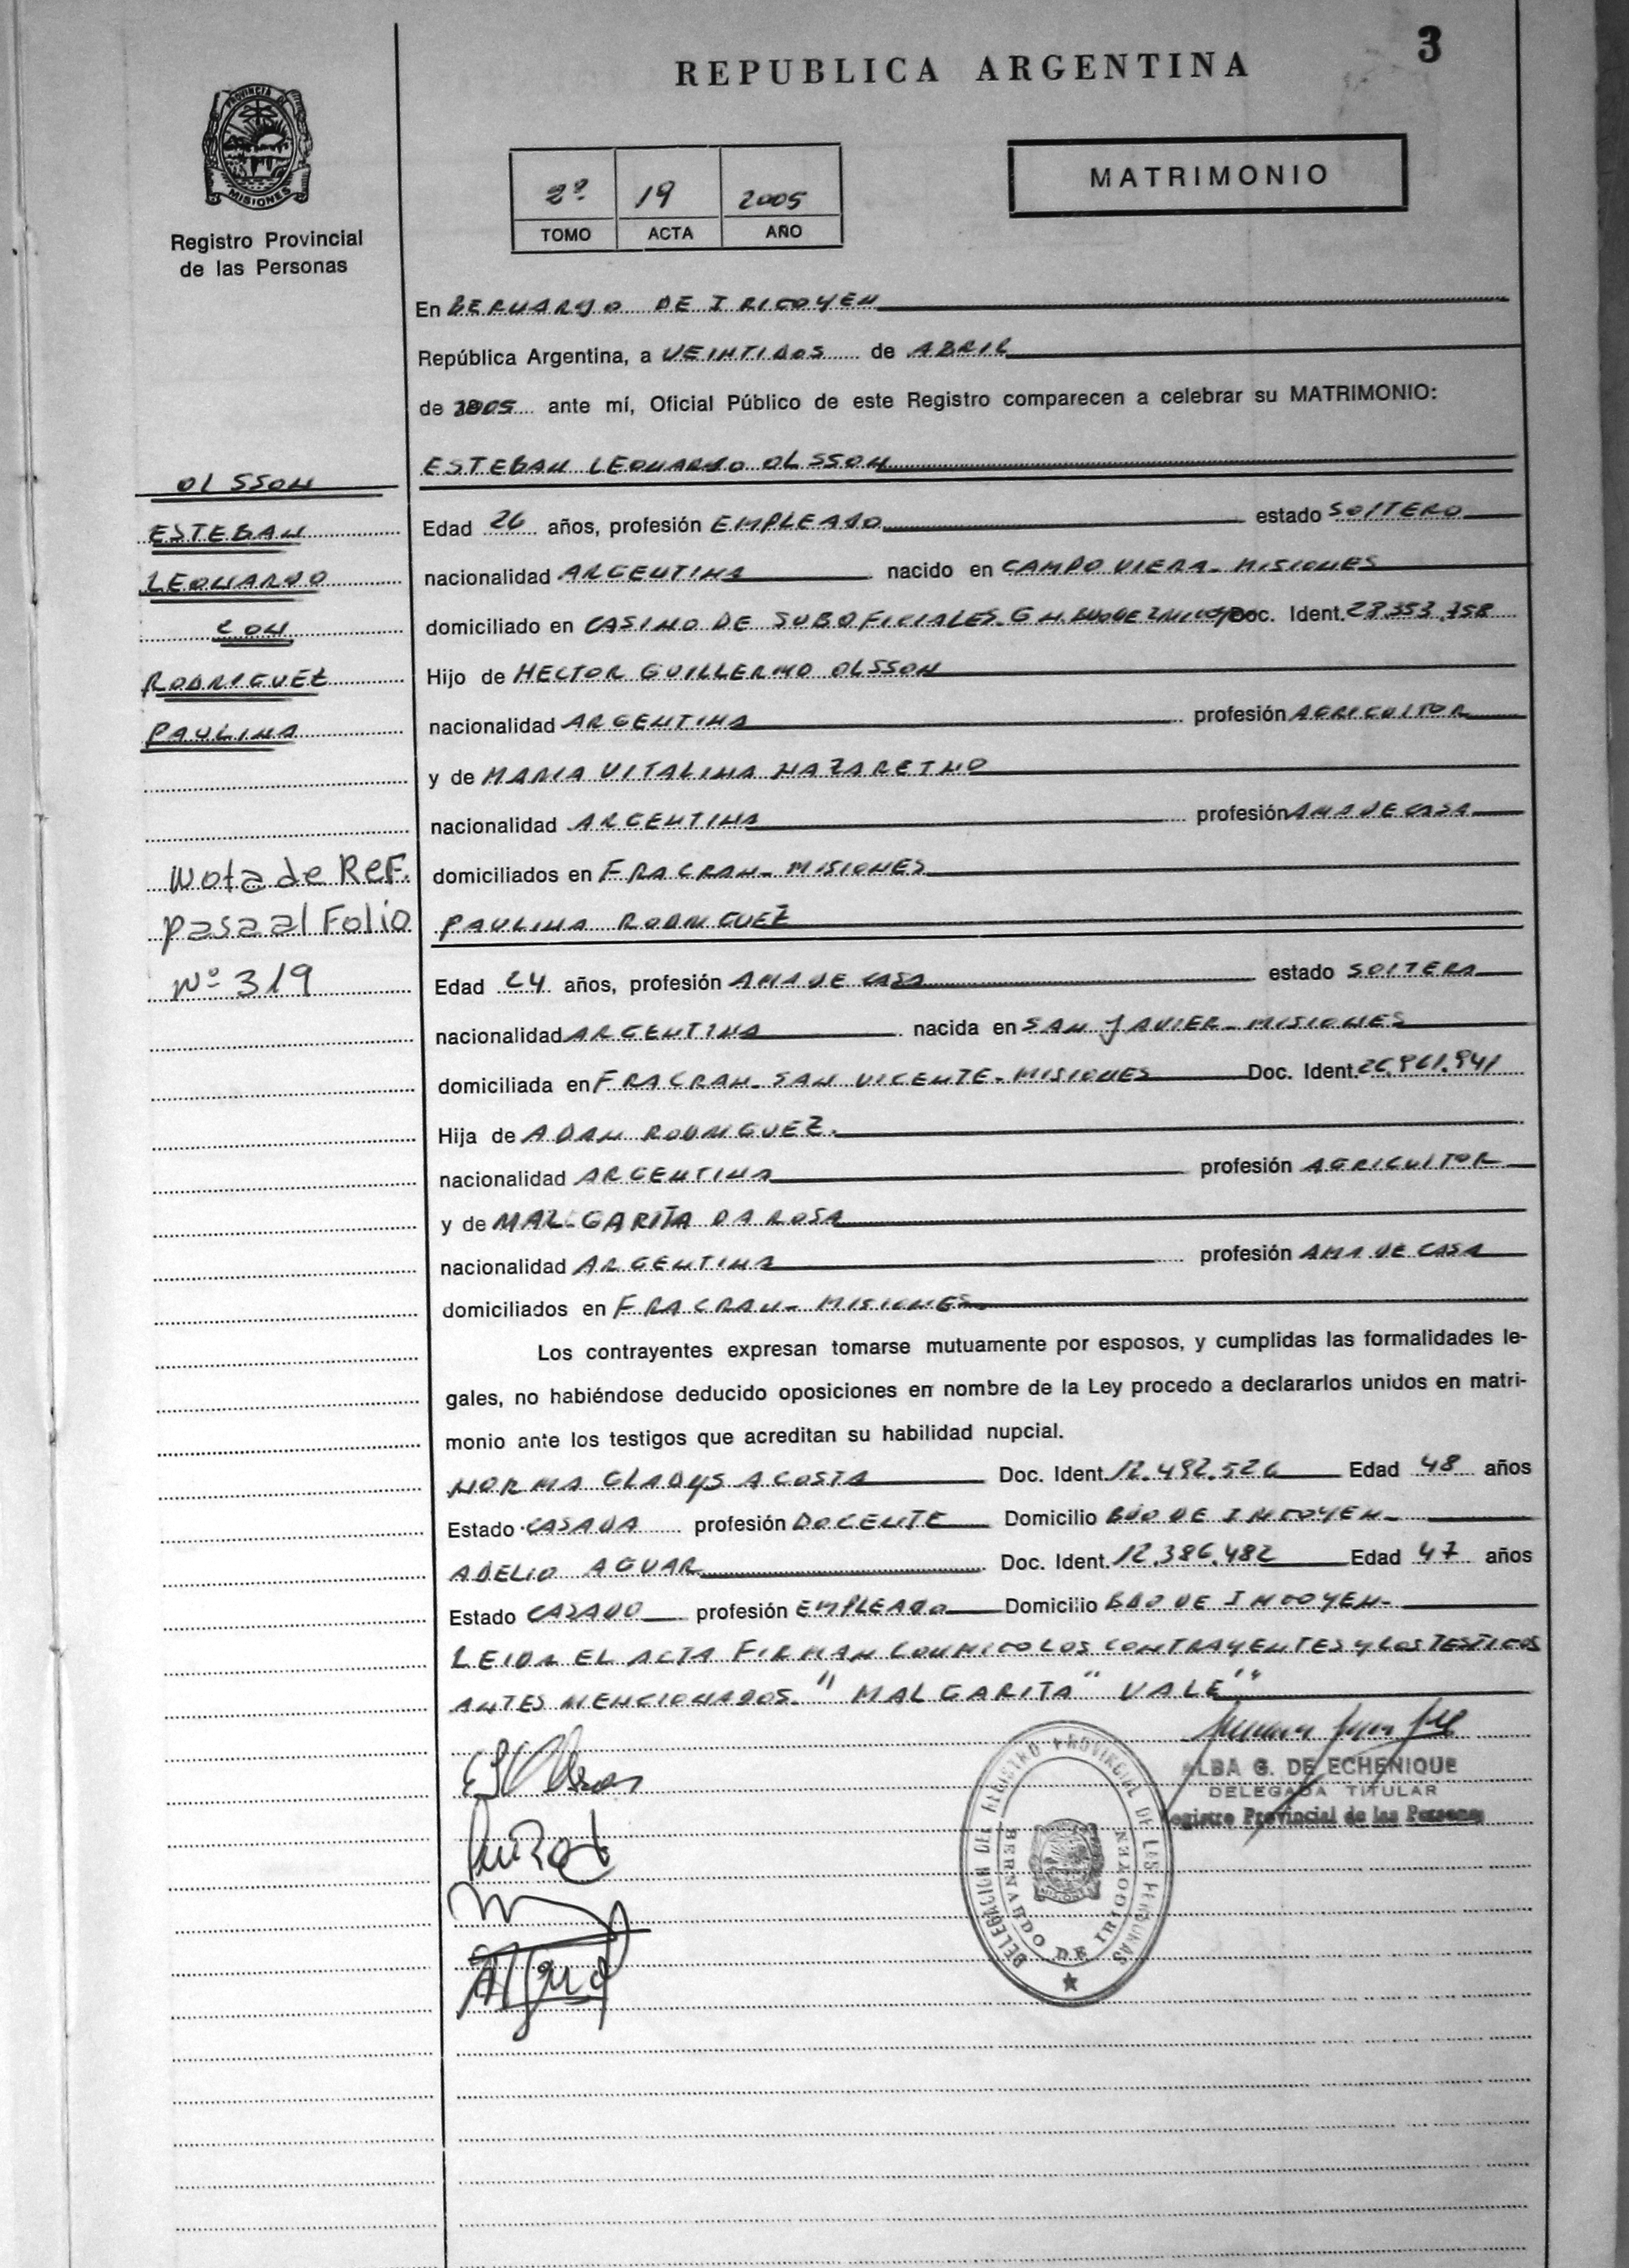 3
REPUBLICA ARGENTINA
PROVINCIA DE
MISIONES
Registro Provincial
de las Personas
2º 19 2005
TOMO ACTA AÑO
MATRIMONIO
En BERNARDO DE IRIGOYEN
República Argentina, a VEINTIDOS de ABRIL
de 2005 ante mí, Oficial Público de este Registro comparecen a celebrar su MATRIMONIO:
OLSSON
ESTEBAN
LEONARDO
CON
RODRIGUEZ
PAULINA
Nota de Ref.
pasa al Folio
Nº 319
ESTEBAN LEONARDO OLSSON
Edad 26 años, profesión EMPLEADO estado SOLTERO
nacionalidad ARGENTINA nacido en CAMPO VIERA - MISIONES
domiciliado en CASINO DE SUBOFICIALES G.N. Doc. Ident.
Hijo de HECTOR GUILLERMO OLSSON
nacionalidad ARGENTINA profesión AGRICULTOR
y de MARIA VITALINA NAZARETNO
nacionalidad ARGENTINA profesión AMA DE CASA
domiciliados en FRACRAN - MISIONES
PAULINA RODRIGUEZ
Edad 24 años, profesión AMA DE CASA estado SOLTERA
nacionalidad ARGENTINA nacida en SAN JAVIER - MISIONES
domiciliada en FRACRAN - SAN VICENTE - MISIONES Doc. Ident.
Hija de ADAN RODRIGUEZ.
nacionalidad ARGENTINA profesión AGRICULTOR
y de MALGARITA DA ROSA
nacionalidad ARGENTINA profesión AMA DE CASA
domiciliados en FRACRAN - MISIONES
Los contrayentes expresan tomarse mutuamente por esposos, y cumplidas las formalidades le-
gales, no habiéndose deducido oposiciones en nombre de la Ley procedo a declararlos unidos en matri-
monio ante los testigos que acreditan su habilidad nupcial.
NORMA GLADYS ACOSTA Doc. Ident. 12.492.526 Edad 48 años
Estado CASADA profesión DOCENTE Domicilio BDO DE IRIGOYEN -
ADELIO AGUAR Doc. Ident. 12.386.482 Edad 47 años
Estado CASADO profesión EMPLEADO Domicilio BDO DE IRIGOYEN -
LEIDA EL ACTA FIRMAN CONMIGO LOS CONTRAYENTES Y LOS TESTIGOS
ANTES MENCIONADOS. "MALGARITA" VALE"
ALBA G. DE ECHENIQUE
DELEGADA TITULAR
Registro Provincial de las Personas
DELEGACION DEL REGISTRO PROVINCIAL DE LAS PERSONAS
BERNARDO DE IRIGOYEN